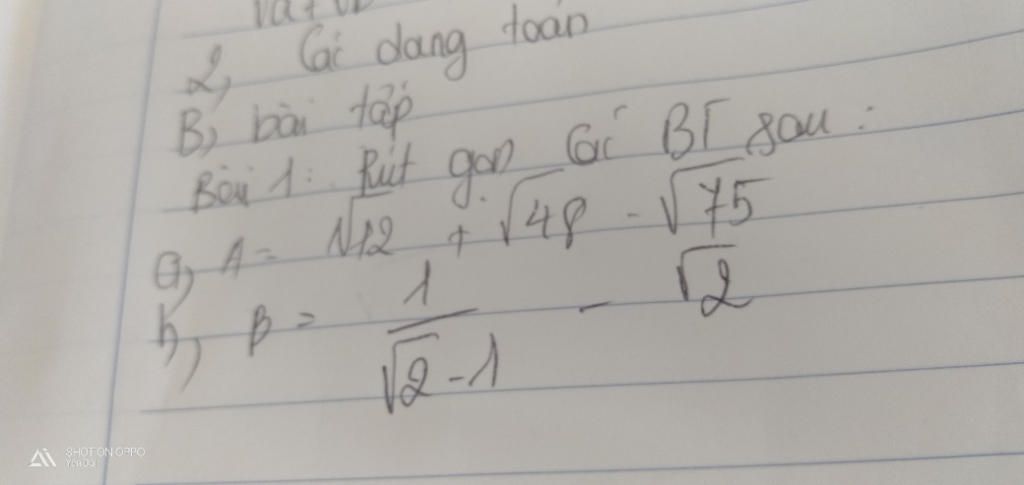 2, Các dạng toán
B, bài tập
Bài 1: Rút gọn các BT sau:
a, A = √12 + √48 - √75
b, B = 1/(√2 - 1) - √2
SHOT ON OPPO